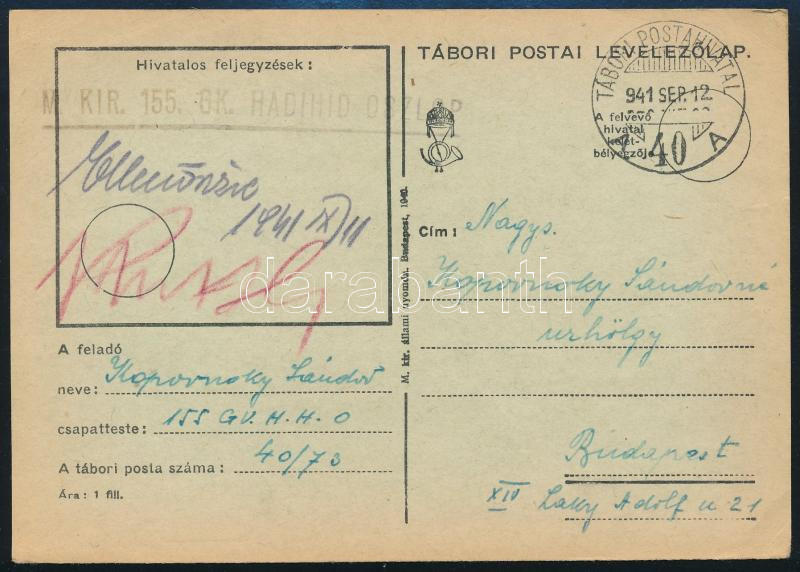 Hivatalos feljegyzések:
M. KIR. 155. GK. HADIHID OSZLOP
Ellenőrizve
1941 IX 11
A feladó
neve: Kopovnoky Sándor
csapatteste: 155 GV. H. H. O
A tábori posta száma: 40/73
Ára: 1 fill.
M. kir. állami nyomda. Budapest, 1940.
TÁBORI POSTAI LEVELEZŐLAP.
TÁBORI POSTAHIVATAL
941 SEP. 12.
A felvevő
hivatal
kelet-
bélyegzője
40 A
Cím: Nagys.
Kopovnoky Sándorné
urhölgy
Budapest
XIV Laky Adolf u 21
darabanth